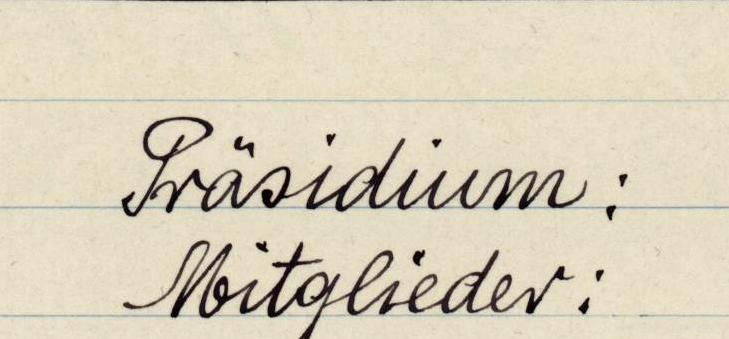 Präsidium:
Mitglieder: